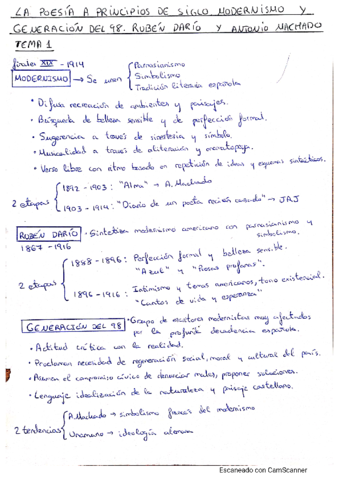 LA POESÍA A PRINCIPIOS DE SIGLO, MODERNISMO Y
GENERACIÓN DEL 98. RUBÉN DARÍO Y ANTONIO MACHADO
TEMA 1
finales XIX - 1914
MODERNISMO → Se unen
Parnasianismo
Simbolismo
Tradición literaria española
• Difusa recreación de ambientes y paisajes.
• Búsqueda de belleza sensible y de perfección formal.
• Sugerencia a través de sinestesia y símbolo.
• Musicalidad a través de aliteración y onomatopeya.
• Verso libre con ritmo basado en repetición de ideas y esquemas sintácticos.
2 etapas
1892 - 1903: "Alma" → A. Machado
1903 - 1914: "Diario de un poeta recién casado" → JRJ
RUBÉN DARÍO • Sintetiza modernismo americano con parnasianismo y
simbolismo.
1867 - 1916
2 etapas
1888 - 1896: Perfección formal y belleza sensible.
"Azul" y "Prosas profanas".
1896 - 1916: Intimismo y temas americanos, tono existencial.
"Cantos de vida y esperanza"
GENERACIÓN DEL 98 • Grupo de escritores modernistas muy afectados
por la profunda decadencia española.
• Actitud crítica con la realidad.
• Proclaman necesidad de regeneración social, moral y cultural del país.
• Asumen el compromiso cívico de denunciar males, proponer soluciones.
• Lenguaje idealización de la naturaleza y paisaje castellano.
2 tendencias
A. Machado → simbolismo francés del modernismo
Unamuno → ideología
Escaneado con CamScanner